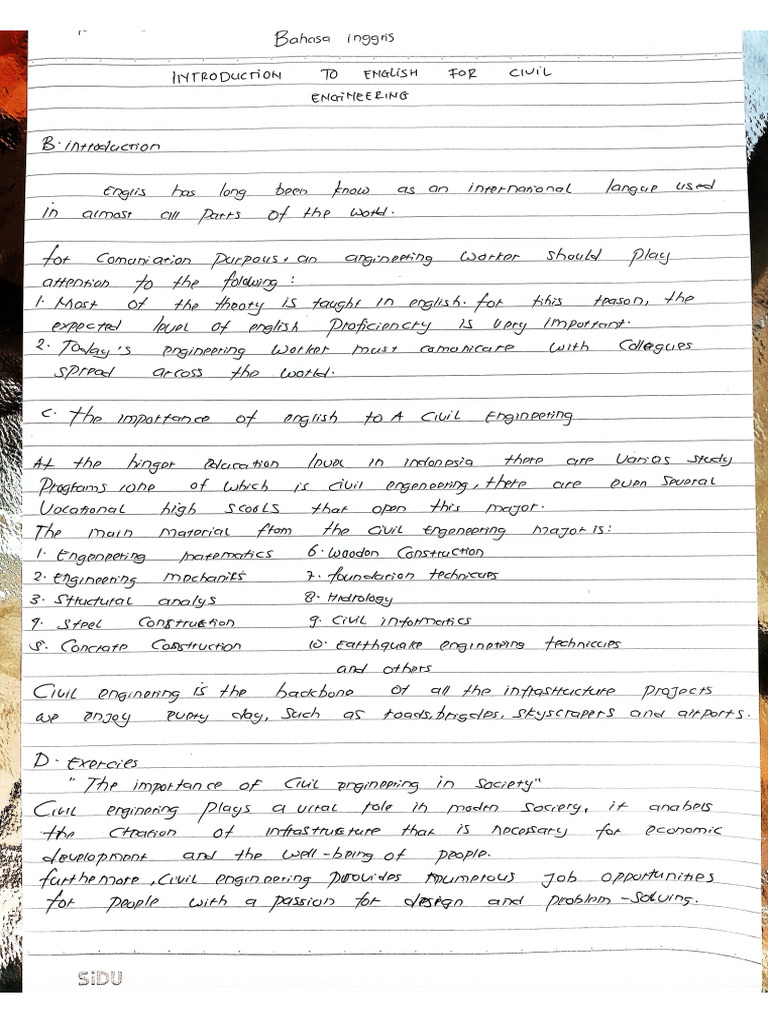 Bahasa inggris
INTRODUCTION TO ENGLISH FOR CIVIL
ENGINEERING
B. introduction
Englis has long been know as an international langue used
in almost all Parts of the world.
for Comuniation Purpous, an angineering Worker should play
attention to the folowing :
1. Most of the theory is taught in english. for tihis reason, the
expected level of english Proficiencry is very important.
2. Today's engineering Worker must comunicare with Collegues
spread arcoss the world.
C. the importance of english to A Civil Engineering
At the hinger Education level in indonesia there are Varios study
Programs, one of which is civil engeneering, there are even several
Vocational high scools that open this major.
The main material from the Civil Engeneering major is:
1. Engeneering matematics 6. wooden Construction
2. Engineering mechanihs 7. foundation technicues
3. Structural analys 8. Hidrology
4. Steel Construction 9. Civil informatics
5. Concrate Construction 10. Earthquake engineering techniccies
and others
Civil enginering is the backbone of all the infrastructure projects
we enjoy every day, Such as roads, brigdes, skyscrapers and airports.
D. Exercies
"The importance of Civil engineering in Society"
Civil enginering Plays a vital role in modrn Society, it anabels
the Creation of infrastructure that is necessary for economic
development and the well-being of people.
furthemore, Civil engineering provides numerous Job opportunities
for people with a passion for design and problem-Solving.
SiDU